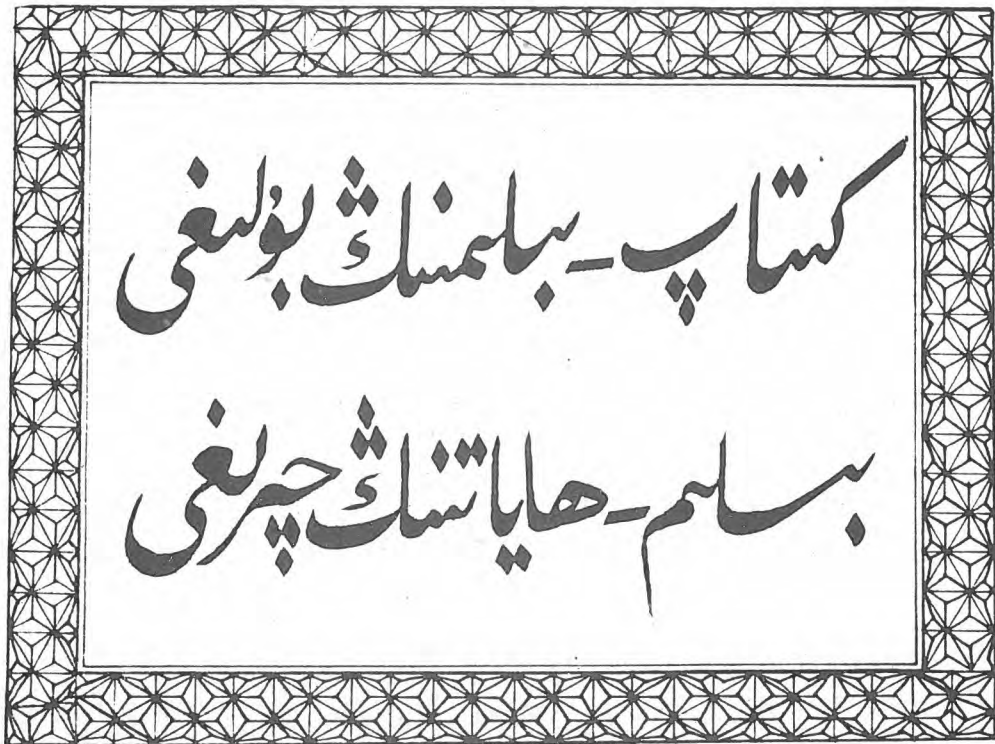 كىتاپ - بىلىمنىڭ بۇلىغى
بىلىم - ھاياتنىڭ چىرىغى